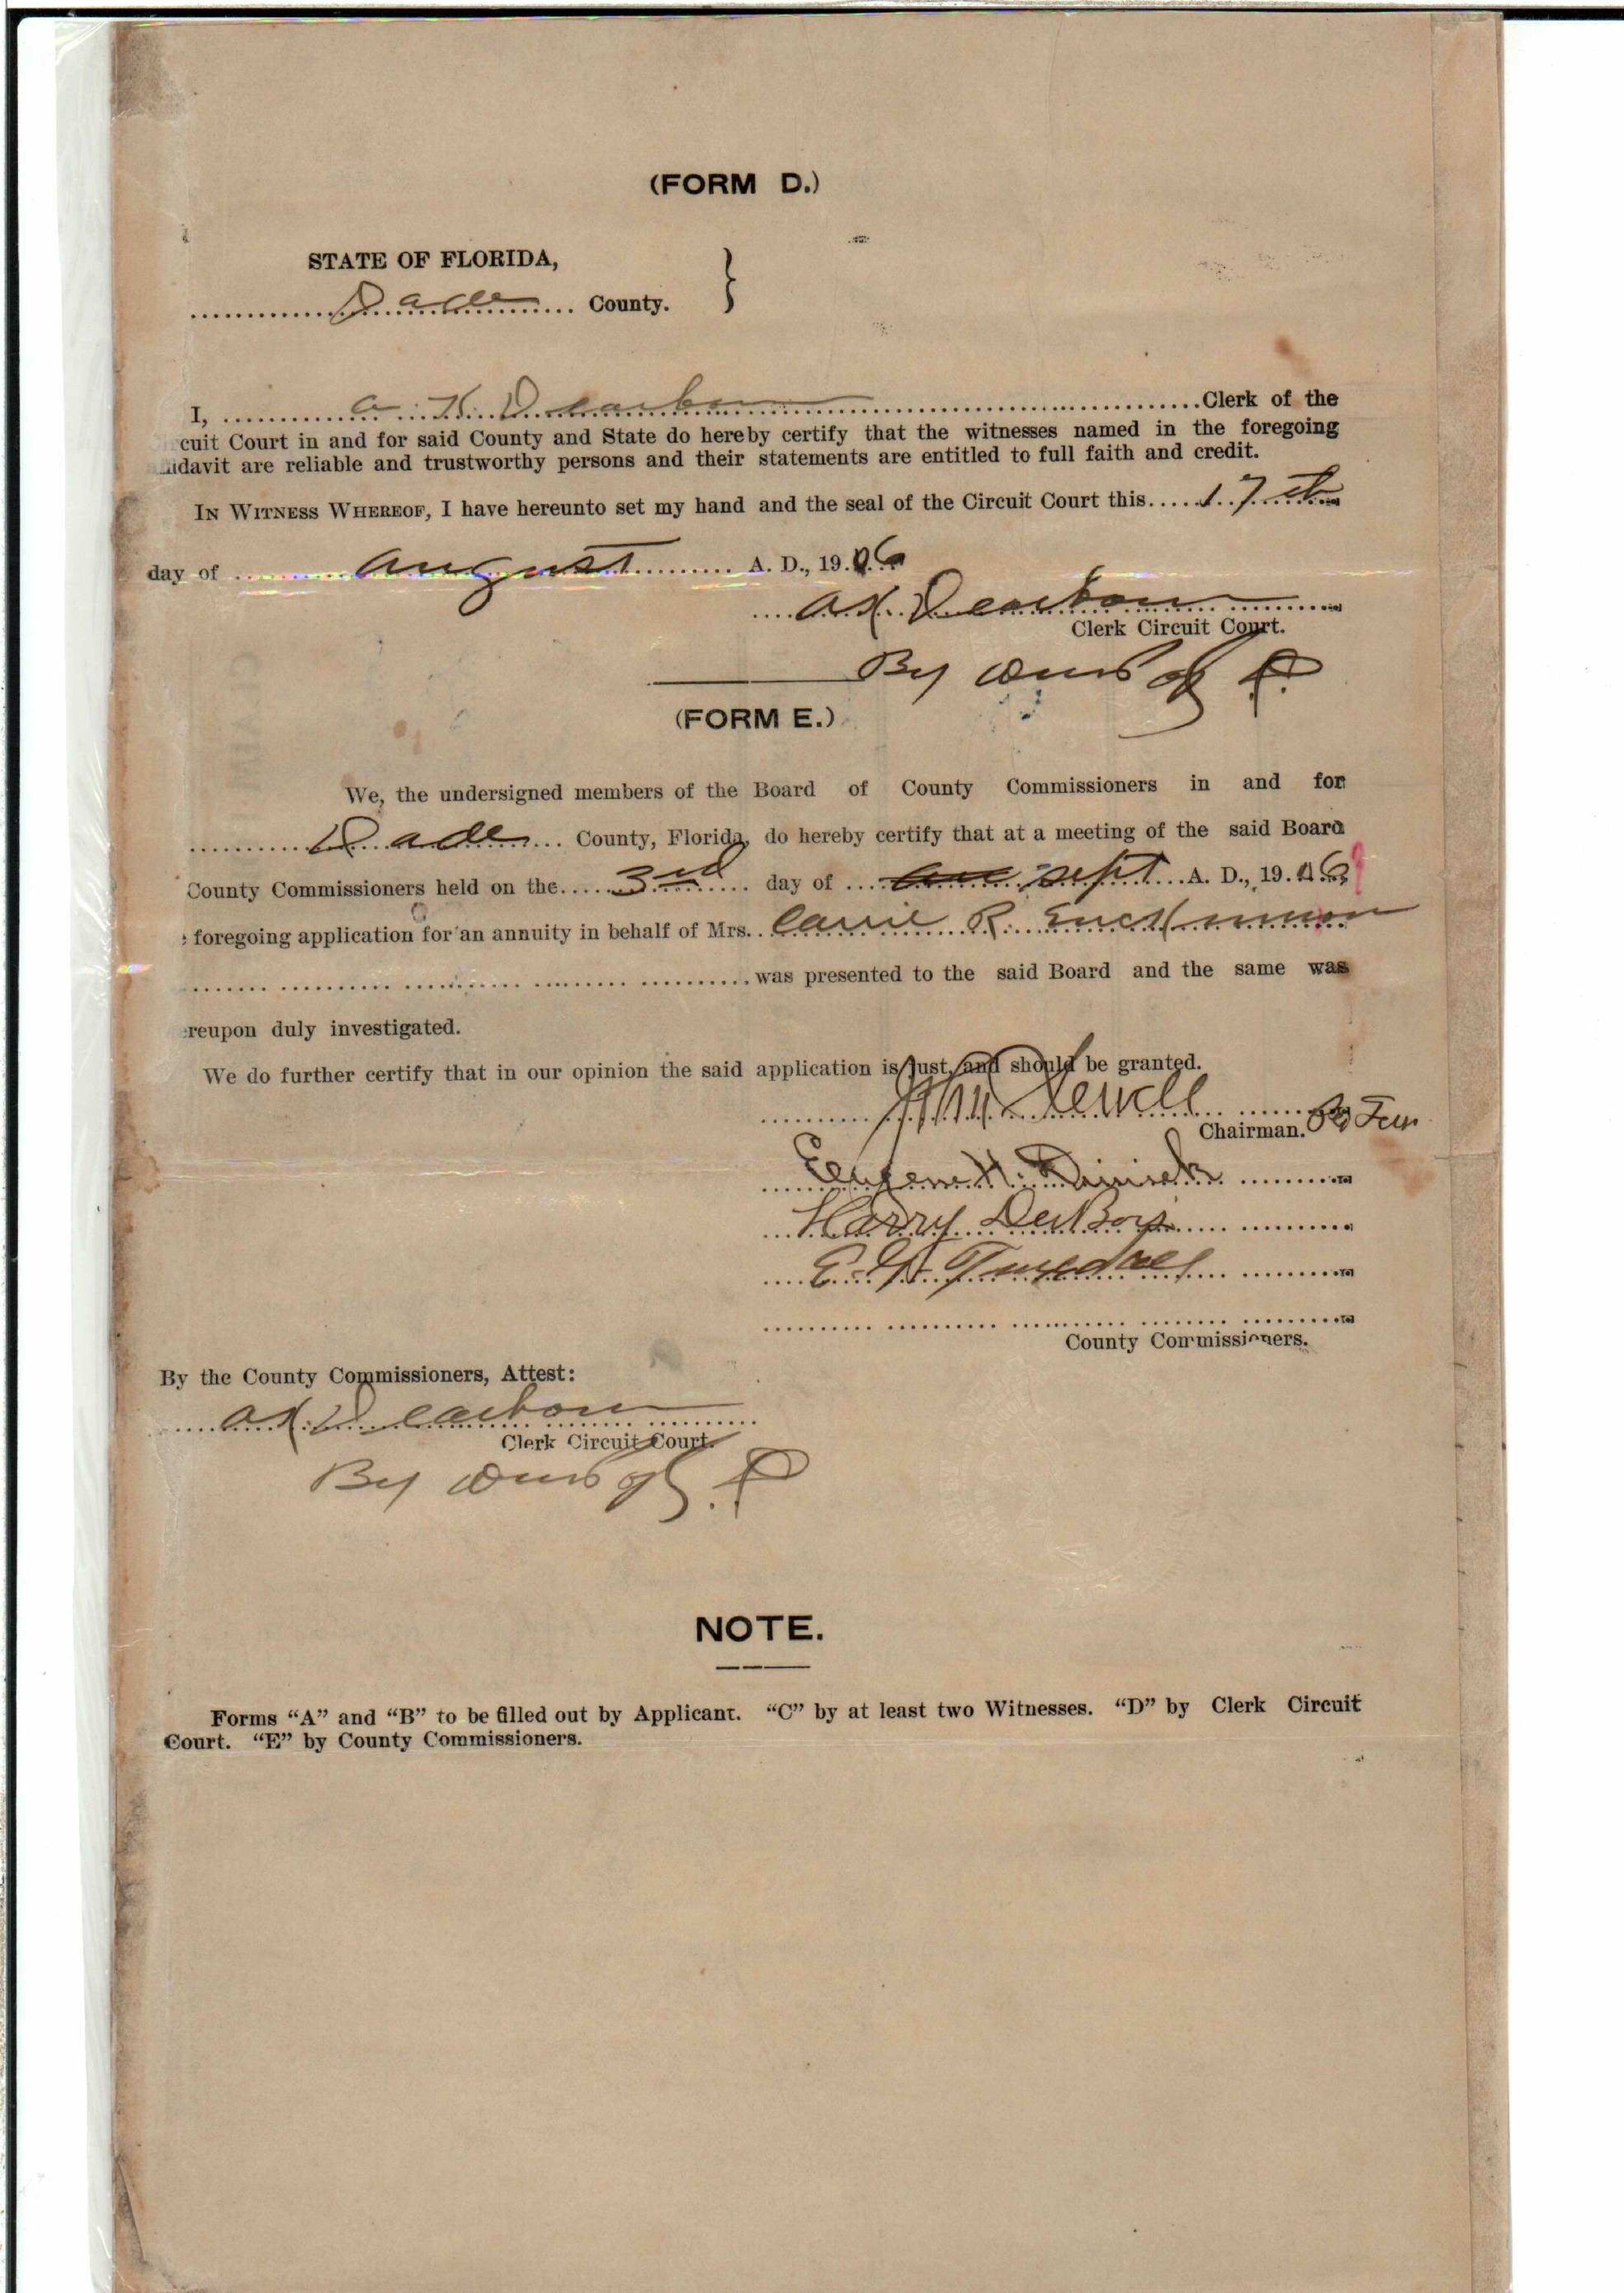 (FORM D.)
STATE OF FLORIDA,
Dade County.
I, A K Dearborn Clerk of the
cuit Court in and for said County and State do hereby certify that the witnesses named in the foregoing
idavit are reliable and trustworthy persons and their statements are entitled to full faith and credit.
IN WITNESS WHEREOF, I have hereunto set my hand and the seal of the Circuit Court this 17th
day of August A. D., 1906
A K Dearborn
Clerk Circuit Court.
By
(FORM E.)
We, the undersigned members of the Board of County Commissioners in and for
Dade County, Florida, do hereby certify that at a meeting of the said Board
County Commissioners held on the 3rd day of Sept A. D., 1906
foregoing application for an annuity in behalf of Mrs. Carrie R.
was presented to the said Board and the same was
reupon duly investigated.
We do further certify that in our opinion the said application is just, and should be granted.
Sewell
Chairman. Pro Tem
Eugene H.
Harry DuBois
E. 
County Commissioners.
By the County Commissioners, Attest:
A K Dearborn
Clerk Circuit Court.
By
NOTE.
Forms “A” and “B” to be filled out by Applicant. “C” by at least two Witnesses. “D” by Clerk Circuit
Court. “E” by County Commissioners.